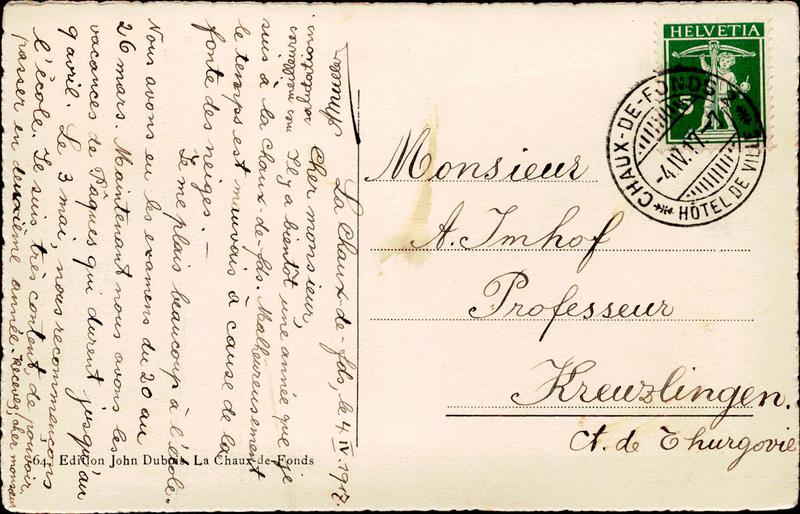 La Chaux-de-fds, le 4. IV 1917.
Cher monsieur,
Il y a bientôt une année que je
suis à la Chaux-de-fds. Malheureusement
le temps est mauvais à cause de la
fonte des neiges. —
Je me plais beaucoup à l'école.
Nous avons eu les examens du 20 au
26 mars. Maintenant nous avons les
vacances de Pâques qui durent jusqu'au
9 avril. Le 3 mai, nous recommençons
l'école. Je suis très content, de pouvoir
passer en deuxième année. Recevez, cher monsieur
Monsieur
A. Imhof
Professeur
Kreuzlingen.
Ct. de Thurgovie
HELVETIA
5
CHAUX-DE-FONDS
-4.IV.17.-
HÔTEL DE VILLE
64. Edition John Dubois, La Chaux-de-Fonds